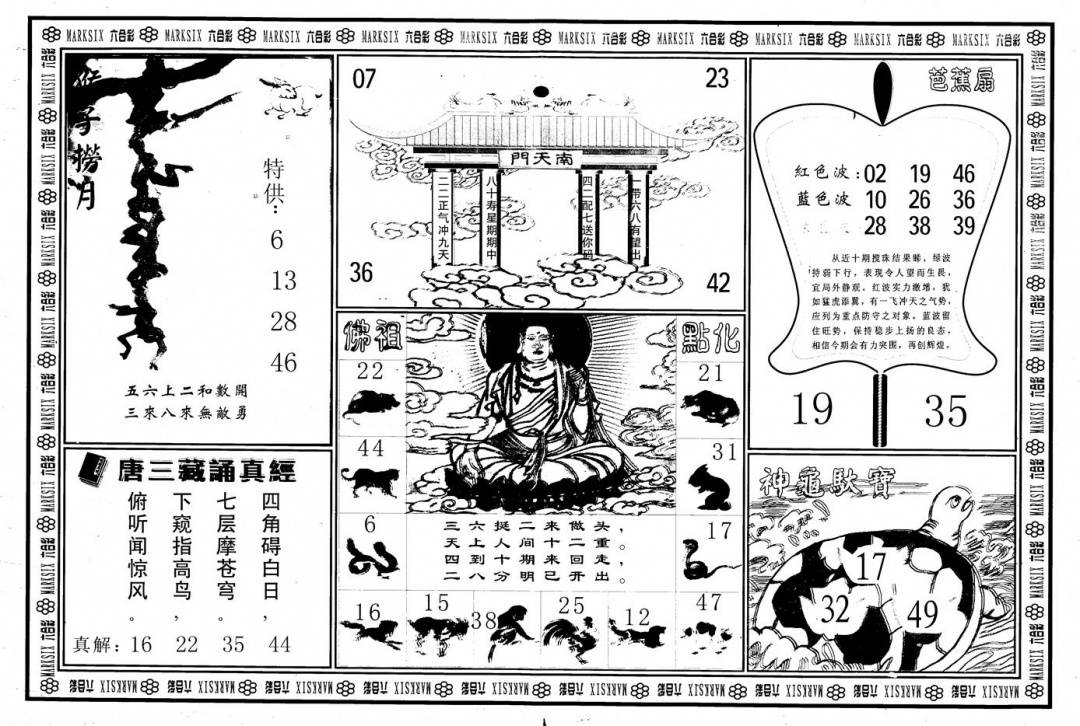 MARKSIX 六合彩 MARKSIX 六合彩 MARKSIX 六合彩 MARKSIX 六合彩 MARKSIX 六合彩 MARKSIX 六合彩 MARKSIX 六合彩 MARKSIX 六合彩 MARKSIX 六合彩 MARKSIX 六合彩
猴子撈月
特供：
6
13
28
46
五六上二和數開
三來八來無敵勇
07
23
南天門
二二正气冲九天
八十寿星期期中
四二配七送你码
一带六八有望出
36
42
芭蕉扇
紅色波：02 19 46
藍色波 10 26 36
28 38 39
从近十期搅珠结果睇，绿波
特弱下行，表现令人望而生畏，
宜局外静观。红波实力激增，犹
如猛虎添翼，有一飞冲天之气势，
应列为重点防守之对象。蓝波留
住旺势，保持稳步上扬的良态，
相信今期会有力突围，再创辉煌。
19
35
唐三藏誦真經
四角碍白日，
七层摩苍穹。
下窥指高鸟，
俯听闻惊风。
真解：16 22 35 44
佛祖
點化
22
21
44
31
6
17
三六挺二来做头，
天上人间十二重。
四到十期来回走，
二八分明已开出。
16
15
38
25
12
47
神龜馱寶
17
32
49